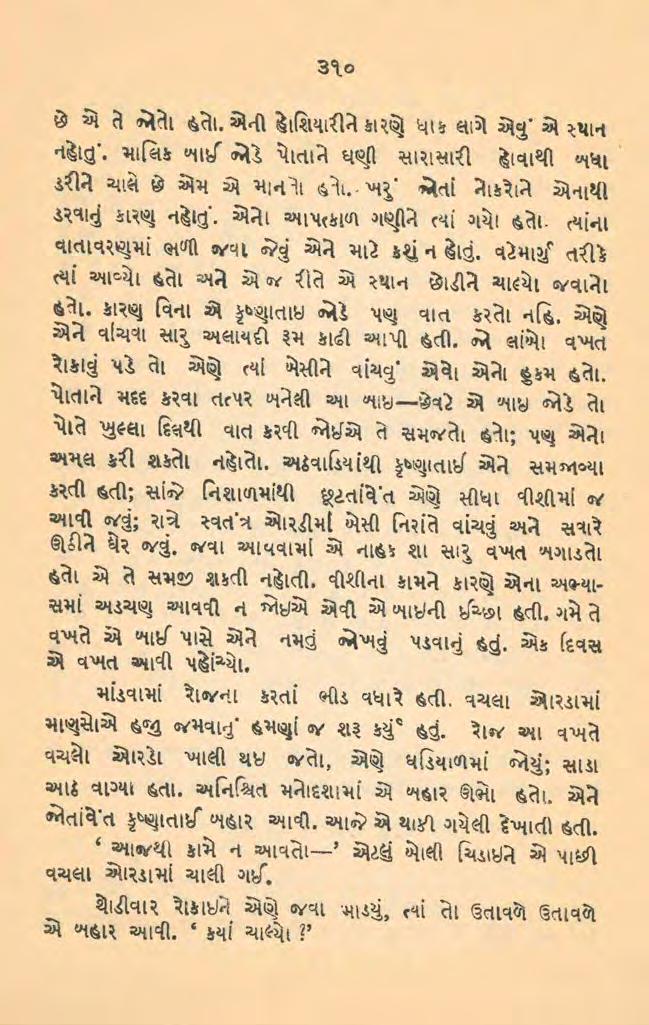 ૩૧૦
છે એ તે જોતો હતો. એની હોશિયારીને કારણે ધાક લાગે એવું એ સ્થાન
નહોતું. માલિક બાઈ જોડે પોતાને ઘણી સારાસારી હોવાથી બધા
ડરીને ચાલે છે એમ એ માનતો હતો. ખરું જોતાં નોકરોને એનાથી
ડરવાનું કારણ નહોતું. એનો આપત્કાળ ગણીને ત્યાં ગયો હતો. ત્યાંના
વાતાવરણમાં ભળી જવા જેવું એને માટે કશું ન હોતું. વટેમાર્ગુ તરીકે
ત્યાં આવ્યો હતો અને એ જ રીતે એ સ્થાન છોડીને ચાલ્યો જવાનો
હતો. કારણ વિના એ કૃષ્ણાતાઇ જોડે પણ વાત કરતો નહિ. એણે
એને વાંચવા સારુ અલાયદી રૂમ કાઢી આપી હતી. જો લાંબો વખત
રોકાવું પડે તો એણે ત્યાં બેસીને વાંચવું એવો એનો હુકમ હતો.
પોતાને મદદ કરવા તત્પર બનેલી આ બાઇ—છેવટે એ બાઇ જોડે તો
પોતે ખુલ્લા દિલથી વાત કરવી જોઈએ તે સમજતો હતો; પણ એનો
અમલ કરી શકતો નહોતો. અઠવાડિયાંથી કૃષ્ણાતાઈ એને સમજાવ્યા
કરતી હતી; સાંજે નિશાળમાંથી છૂટતાંવેંત એણે સીધા વીશીમાં જ
આવી જવું; રાત્રે સ્વતંત્ર ઓરડીમાં બેસી નિરાંતે વાંચવું અને સવારે
ઊઠીને ઘેર જવું. જવા આવવામાં એ નાહક શા સારુ વખત બગાડતો
હતો એ તે સમજી શકતી નહોતી. વીશીના કામને કારણે એના અભ્યા-
સમાં અડચણ આવવી ન જોઇએ એવી એ બાઇની ઈચ્છા હતી. ગમે તે
વખતે એ બાઈ પાસે એને નમતું જોખવું પડવાનું હતું. એક દિવસ
એ વખત આવી પહોંચ્યો.
માંડવામાં રોજના કરતાં ભીડ વધારે હતી. વચલા ઓરડામાં
માણુસોએ હજુ જમવાનું હમણાં જ શરૂ કર્યું હતું. રોજ આ વખતે
વચલો ઓરડો ખાલી થઇ જતો, એણે ઘડિયાળમાં જોયું; સાડા
આઠ વાગ્યા હતા. અનિશ્ચિત મનોદશામાં એ બહાર ઊભો હતો. એને
જોતાંવેંત કૃષ્ણાતાઈ બહાર આવી. આજે એ થાકી ગયેલી દેખાતી હતી.
‘ આજથી કામે ન આવતો—’ એટલું બોલી ચિડાઇને એ પાછી
વચલા ઓરડામાં ચાલી ગઈ.
થોડીવાર રોકાઇને એણે જવા માડયું, ત્યાં તો ઉતાવળે ઉતાવળે
એ બહાર આવી. ‘ કયાં ચાલ્યો ?’